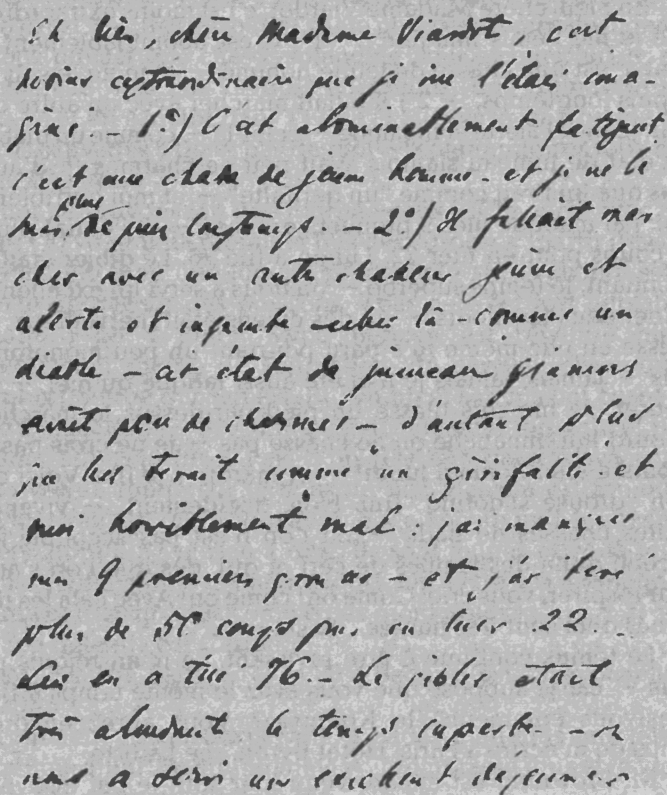 Eh bien, chère Madame Viardot, c'est
moins extraordinaire que je me l'étais ima-
giné. – 1º) C'est abominablement fatigant
c'est une chasse de jeune homme – et je ne le
suis plus depuis longtemps. – 2º) Il fallait mar
cher avec un autre chasseur jeune et
alerte et – celui là – comme un
diable – cet état de
avait peu de charmes – d'autant plus
que lui tirait comme "un gerifalte" et
moi horriblement mal : j'ai manqué
mes 9 premiers – et j'ai tiré
plus de 50 coups pour en tuer 22. –
Lui en a tué 76. – Le gibier était
très abondant le temps superbe – on
nous a servi un excellent déjeuner